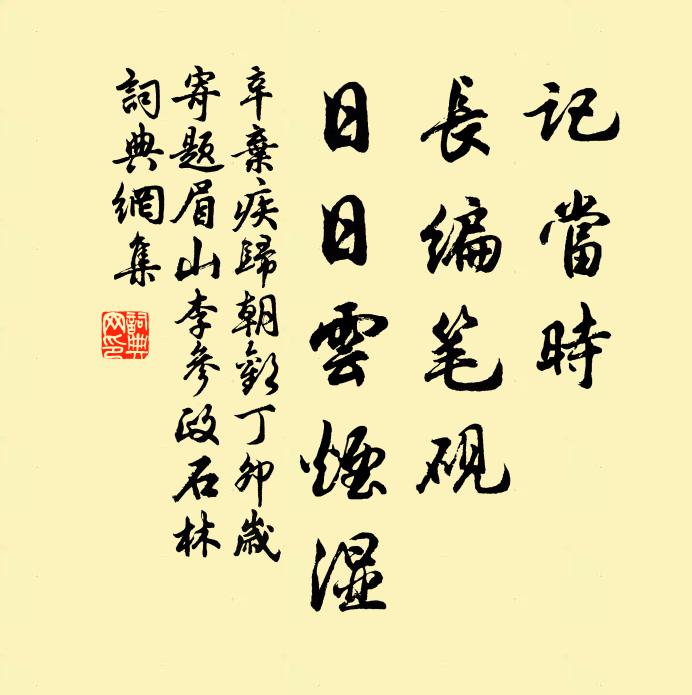 記當時
長编笔硯
日日雲煙濕
辛棄疾歸朝歡丁卯歲
寄题眉山李參政石林
詞典網集
詞典网印